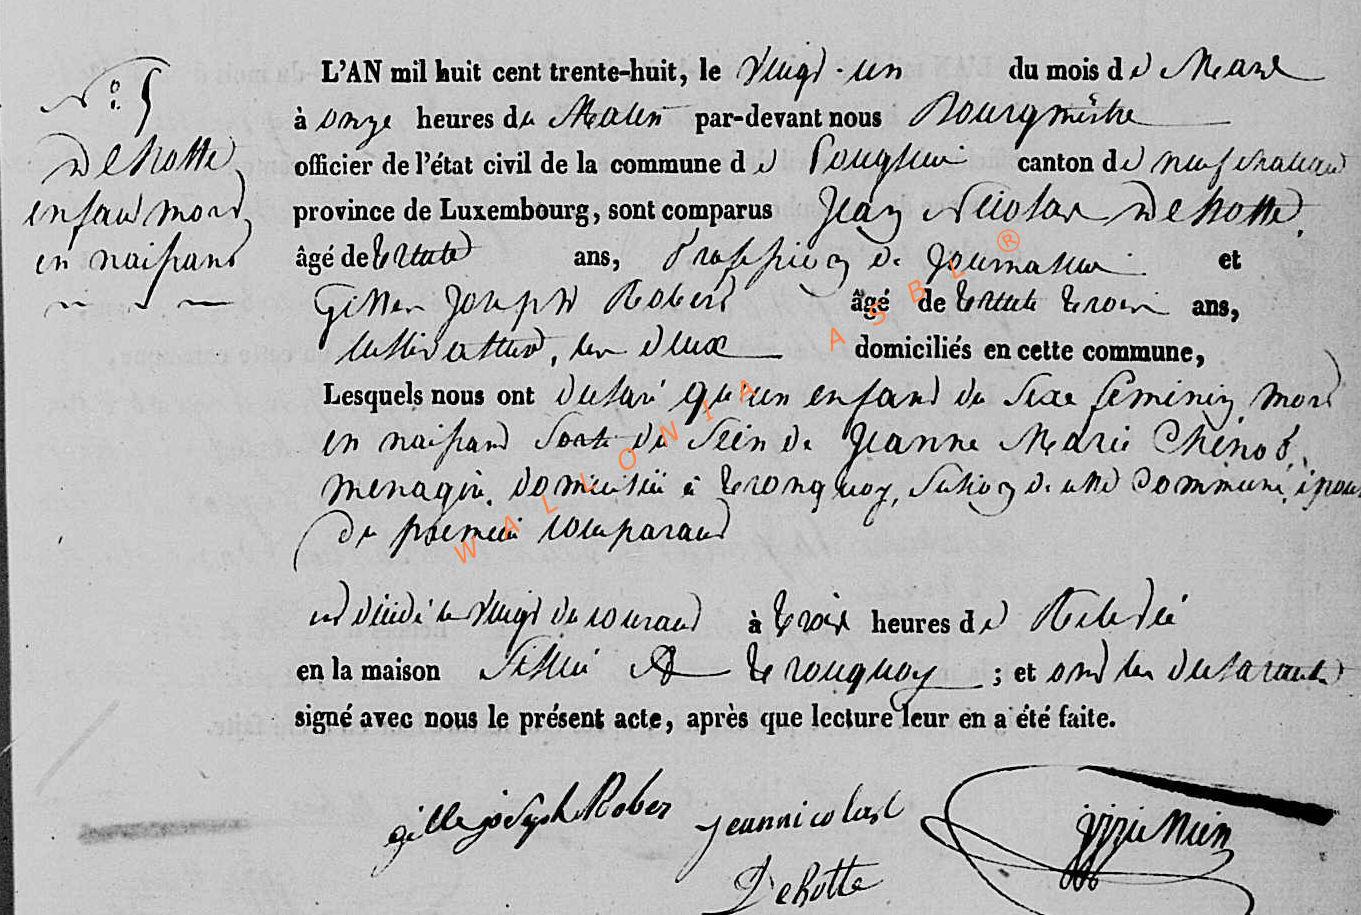 N° 5
Dehotte
enfant mort
en naissant
L'AN mil huit cent trente-huit, le vingt-un du mois de Mars
à onze heures du Matin par-devant nous Bourgmestre
officier de l'état civil de la commune de canton de neufchateau
province de Luxembourg, sont comparus Jean Nicolas Dehotte,
âgé de trente ans, Proffession de Journalier et
Gilles Joseph Robert âgé de trente trois ans,
cultivateur, les deux domiciliés en cette commune,
Lesquels nous ont declaré qu'un enfant du Sexe feminin, mort
en naissant Sorti du Sein de Jeanne Marie Chenot,
menagère, domiciliée à tronquoy, Section de cette Commune, épouse
du premier comparant
est décédé le vingt du courant à trois heures de Relevée
en la maison Sittuée A tronquoy ; et ont les declarants
signé avec nous le présent acte, après que lecture leur en a été faite.
gille joseph Rober jeannicolas
Dehotte
WALLONIA ASBL ®